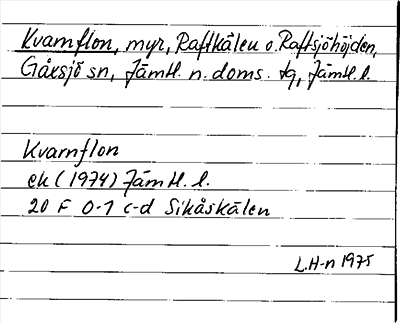 Kvarnflon, myr, Raftkälen o. Raftsjöhöjden,
Gåxsjö sn, Jämtl. n. doms. tg, Jämtl. l.
Kvarnflon
ek (1974) Jämtl. l.
20 F 0-1 c-d Sikåskälen
L.H-n 1975